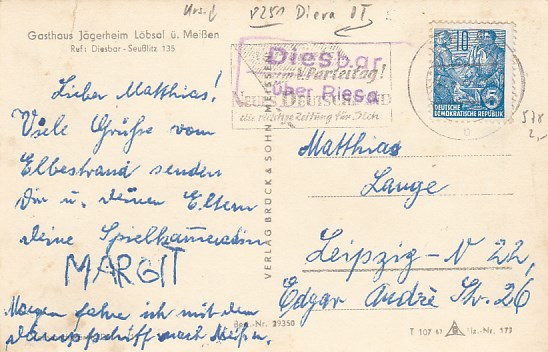 8251 Diera OT
Gasthaus Jägerheim Löbsal ü. Meißen
Ruf: Diesbar-Seußlitz 135
Lieber Matthias!
Viele Grüße vom
Elbestrand senden
Dir u. deinen Eltern
deine Spielkameradin
MARGIT
Morgen fahre ich mit dem
Dampfschiff nach Meißen.
VERLAG BRÜCK & SOHN, MEISSEN
Best.-Nr. 29350
Diesbar
über Riesa
Parteitag!
NEUES DEUTSCHLAND
die richtige Zeitung für Dich
10
DEUTSCHE
DEMOKRATISCHE REPUBLIK
5
578
2,-
Matthias
Lange
Leipzig-N 22,
Edgar André Str. 26
T 107 61
Liz.-Nr. 177